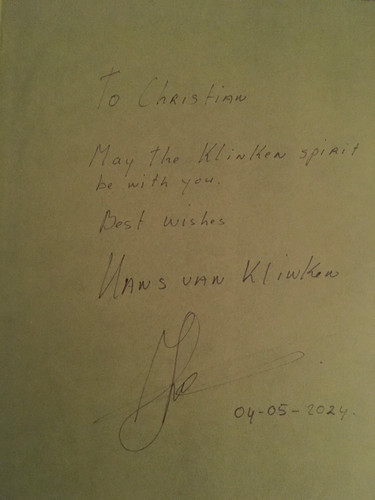 To Christian
May the Klinken spirit
be with you.
Best wishes
Hans van Klinken
04-05-2024.